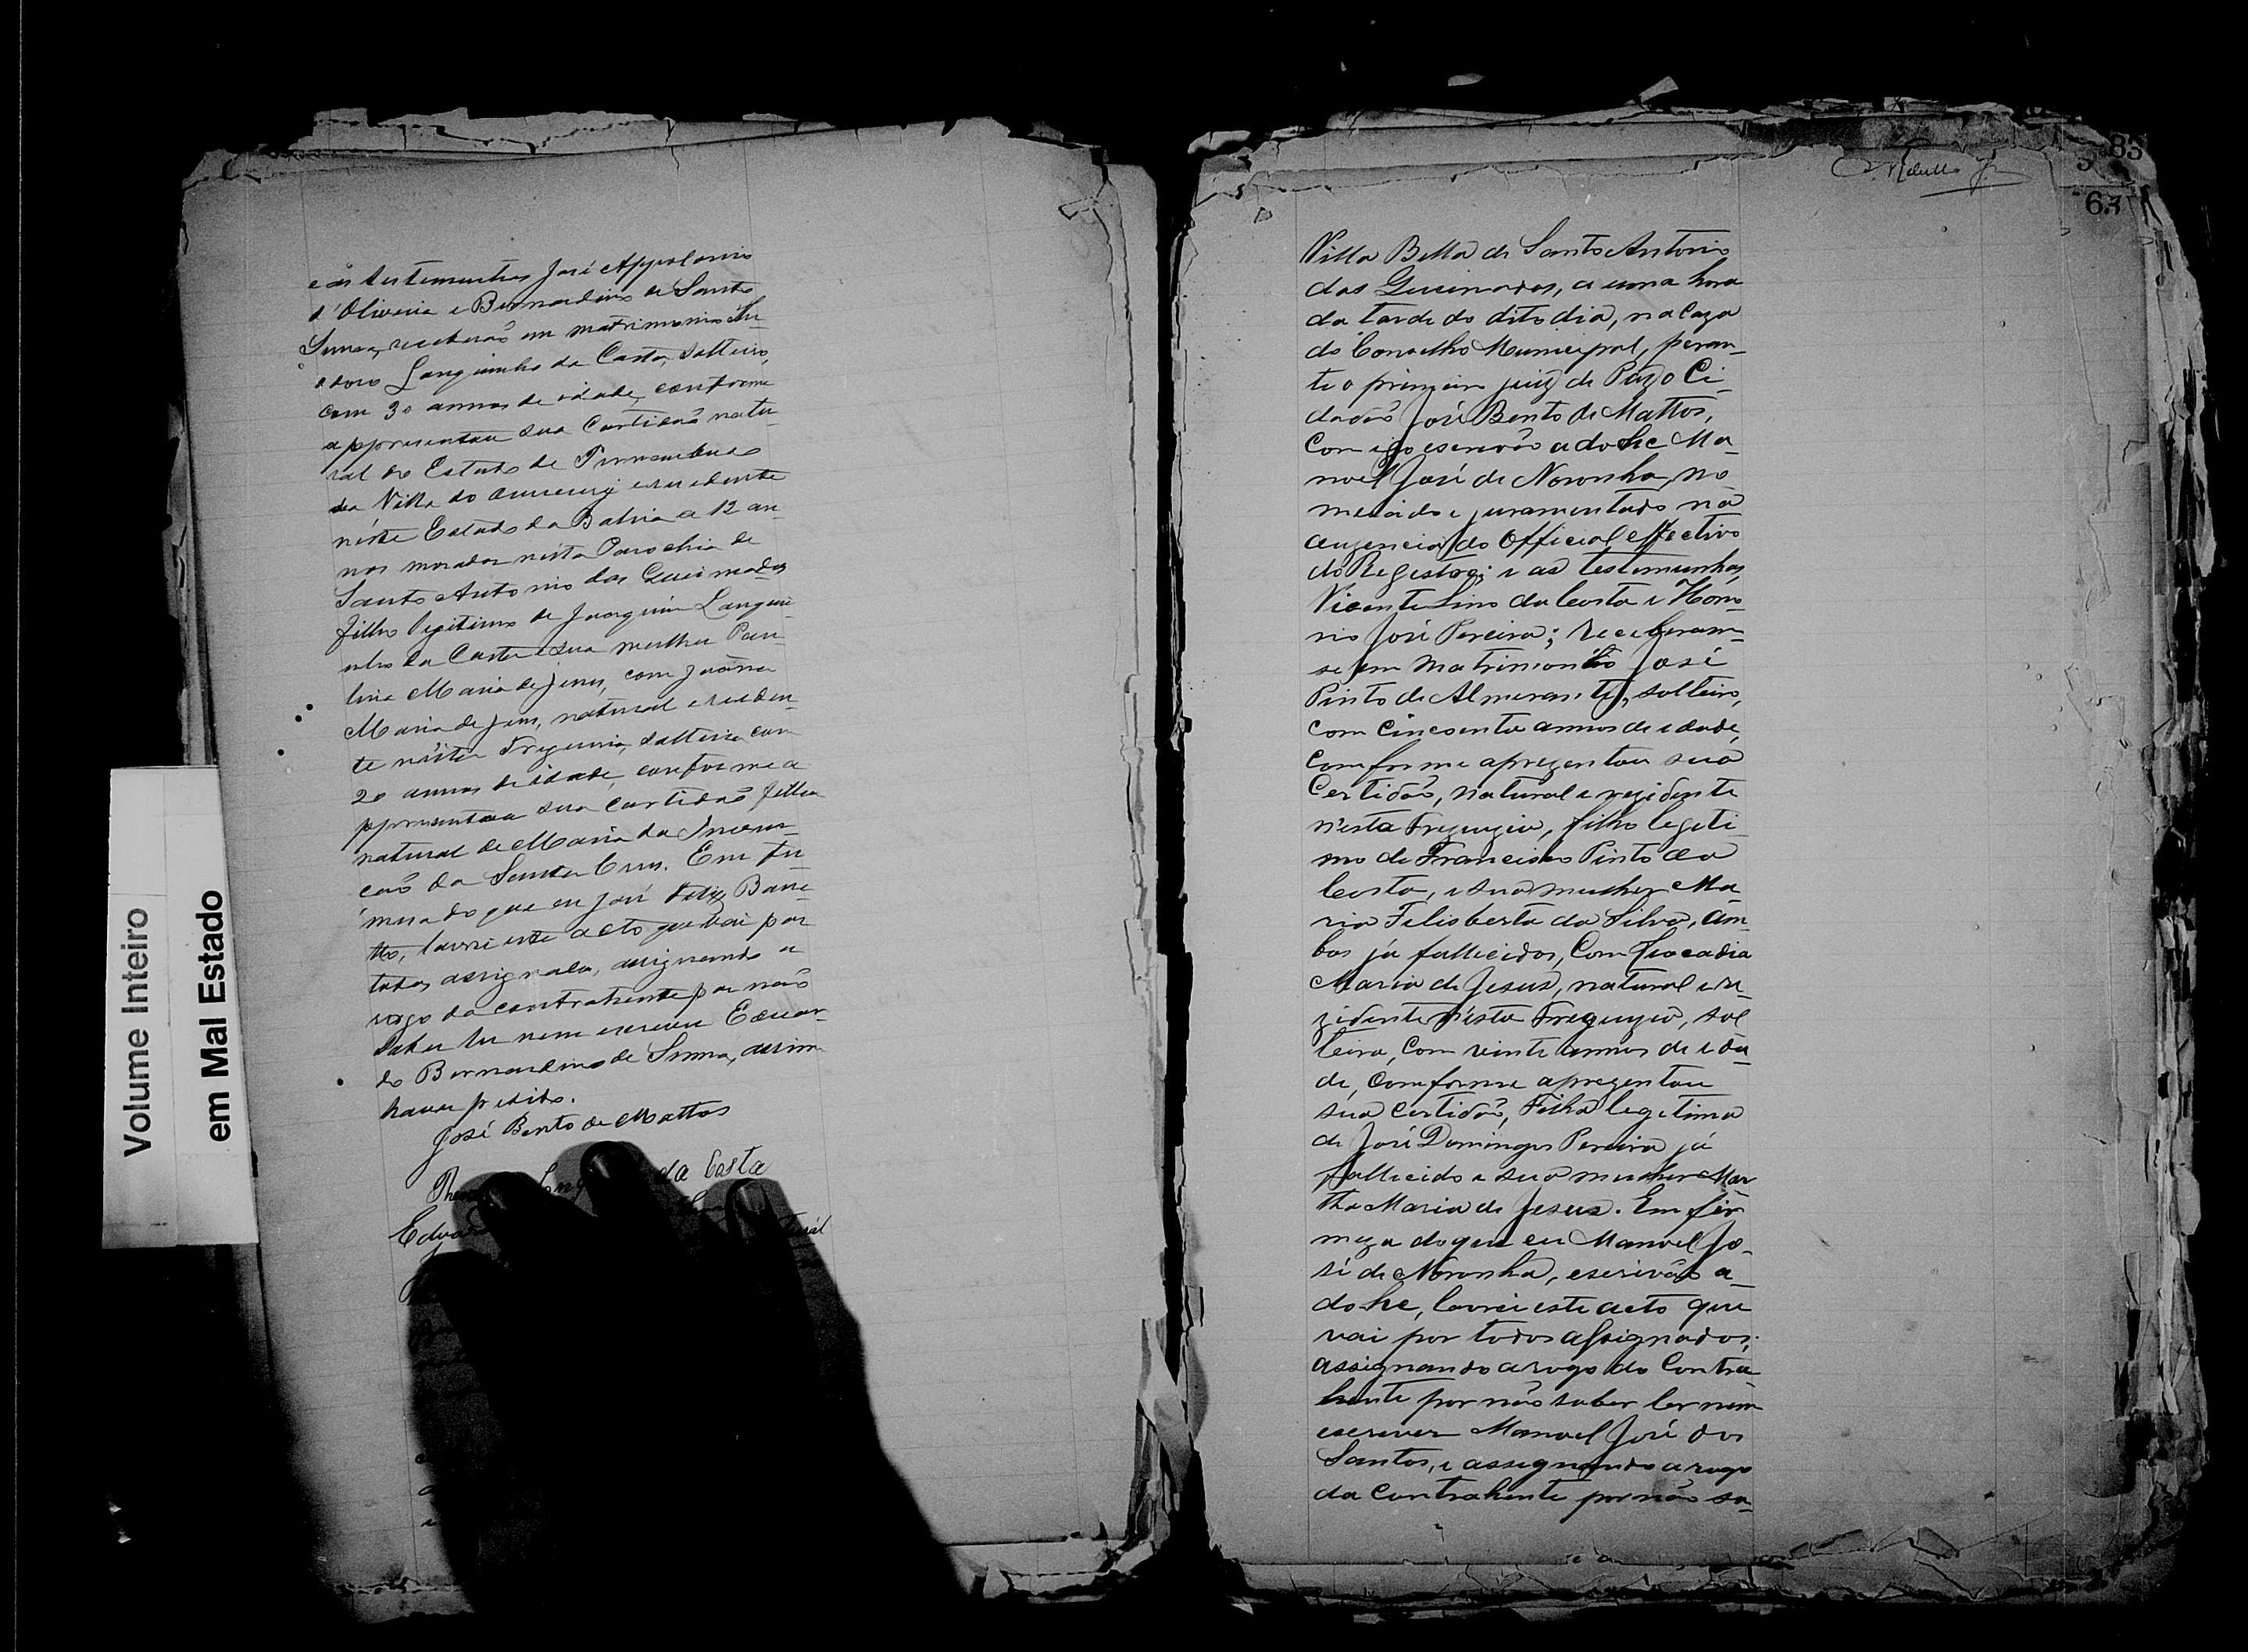 Volume Inteiro
em Mal Estado
e as testemunhas José Appolonio
d'Oliveira e Bernardino de Santa
Senna, receberão em matrimonio The-
odoro Languinho da Costa, solteiro,
com 30 annos de idade, conforme
appresentou sua Certidão natu-
ral do Estado de Pernambuco
da Villa do e residente
néste Estado da Bahia a 12 an-
nos morador nésta Parochia de
Santo Antonio das Queimadas
filho legitimo de Joaquim Langui-
nho da Costa e sua mulher Pau-
lina Maria de Jesus, com Joanna
Maria de Jesus, natural e residen-
te nésta Freguesia, solteira com
20 annos de idade, conforme a
ppresentou sua certidão filha
natural de Maria da Incarna-
ção da Santa Crus. Em fir
mesa do que eu José Felix Barre
tto, lavrei este acto que vai por
todos assignado, assignando a
rogo da contrahente por não
saber ler nem escrever Eduar-
do Bernardino de Senna, assim
haver pedido.
José Bento de Mattos
da Costa
83
3
67
Villa Bella de Santo Antonio
das Queimadas, a uma hora
da tarde do dito dia, na Caza
do Conselho Municipal, peran-
te o primeiro juiz de Pazo Ci-
dadão José Bento de Mattos,
Comigo escrivão adohc Ma-
noel José de Noronha, no-
meiado e juramentado na
auzencia do Official effectivo
do Registro; e as testemunhas,
Vicente Lino da Costa e Hono-
rio José Pereira; receberam-
se em Matrimonio José
Pinto de Almerante, solteiro,
com cincoenta annos de edade,
comforme aprezentou sua
Certidão, natural e rezidente
n'esta Freguzia, filho legeti-
mo de Francisco Pinto da
Costa, e sua mulher Ma-
ria Felisberta da Silva, am-
bos já fallecidos, Com Leocadia
Maria de Jesus, natural e re-
zidente n'esta Freguzia, sol
teira, com vinte annos de eda-
de, comforme aprezentou
sua certidão, Filha legetima
de José Domingos Pereira já
fallecido e sua mulher Mar
tha Maria de Jesus. Em fir
meza do que eu Manoel Jo-
sé de Noronha, escrivão a-
do-hc, lavrei este acto que
vai por todos assignados;
assignando a rogo do Contra-
hente por não saber ler nem
escrever Manoel José dos
Santos, e assignando a rogo
da Contrahente por não sa-